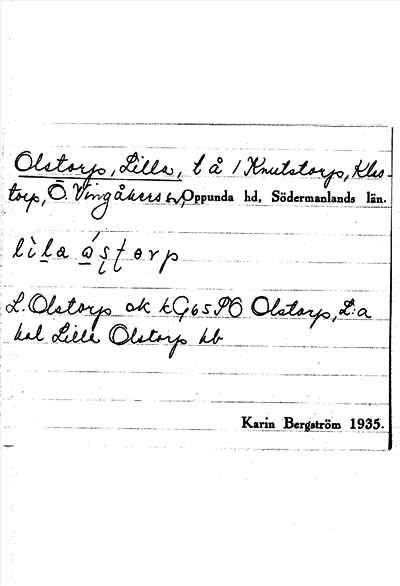 Olstorp, Lilla, t å 1 Knutstorp, Klas-
torp, Ö. Vingåkers sn, Oppunda hd, Södermanlands län.
lìla ástorp
L. Olstorp ok kG65 SÖ Olstorp, L:a
kal Lilla Olstorp hb
Karin Bergström 1935.